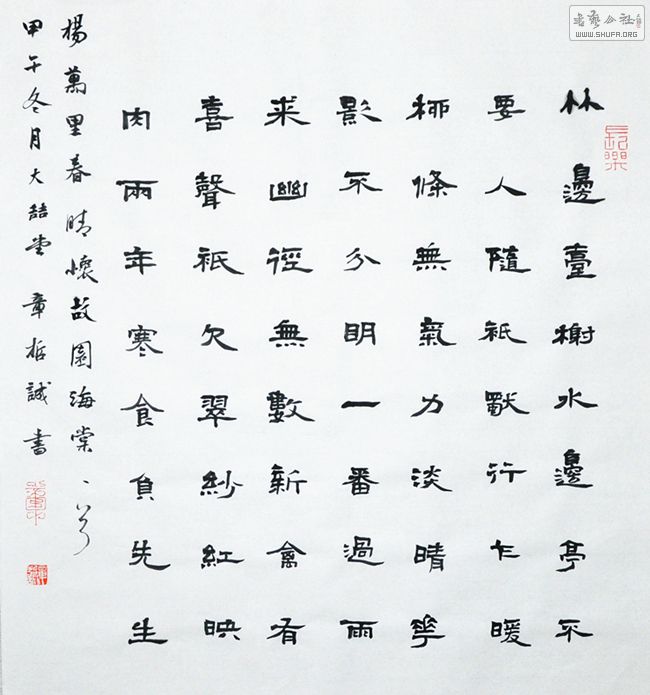 竹邊臺榭水邊亭不
要人隨祇獨行乍暖
柳條無氣力淡晴花
影不分明一番過雨
來幽徑無數新禽有
喜聲祇欠翠紗紅映
肉兩年寒食負先生
楊萬里春晴懷故園海棠一首
甲午冬月大喆堂章哲誠書
長樂
書藝公社
WWW.SHUFA.ORG